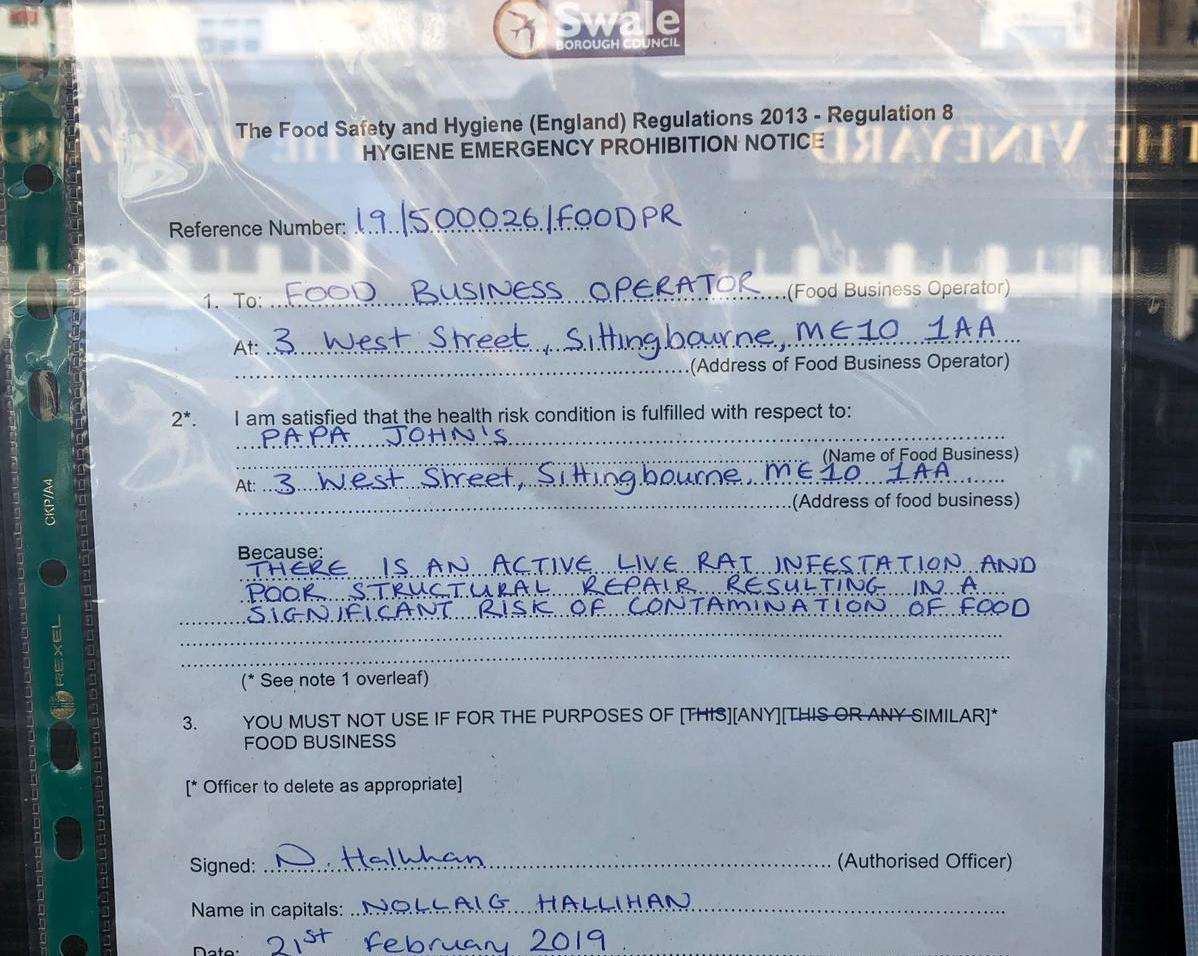 Swale
BOROUGH COUNCIL
THE VINEYARD
The Food Safety and Hygiene (England) Regulations 2013 - Regulation 8
HYGIENE EMERGENCY PROHIBITION NOTICE
Reference Number: 19/500026/FOODPR
1. To: FOOD BUSINESS OPERATOR (Food Business Operator)
At: 3 West Street, Sittingbourne, ME10 1AA
(Address of Food Business Operator)
2*. I am satisfied that the health risk condition is fulfilled with respect to:
PAPA JOHN'S
(Name of Food Business)
At: 3 West Street, Sittingbourne, ME10 1AA
(Address of food business)
CKP/A4
Because:
THERE IS AN ACTIVE LIVE RAT INFESTATION AND
POOR STRUCTURAL REPAIR RESULTING IN A
SIGNIFICANT RISK OF CONTAMINATION OF FOOD
REXEL
(* See note 1 overleaf)
3. YOU MUST NOT USE IF FOR THE PURPOSES OF [THIS][ANY][THIS OR ANY SIMILAR]*
FOOD BUSINESS
[* Officer to delete as appropriate]
Signed: N. Hallihan (Authorised Officer)
Name in capitals: NOLLAIG HALLIHAN
Date: 21st February 2019